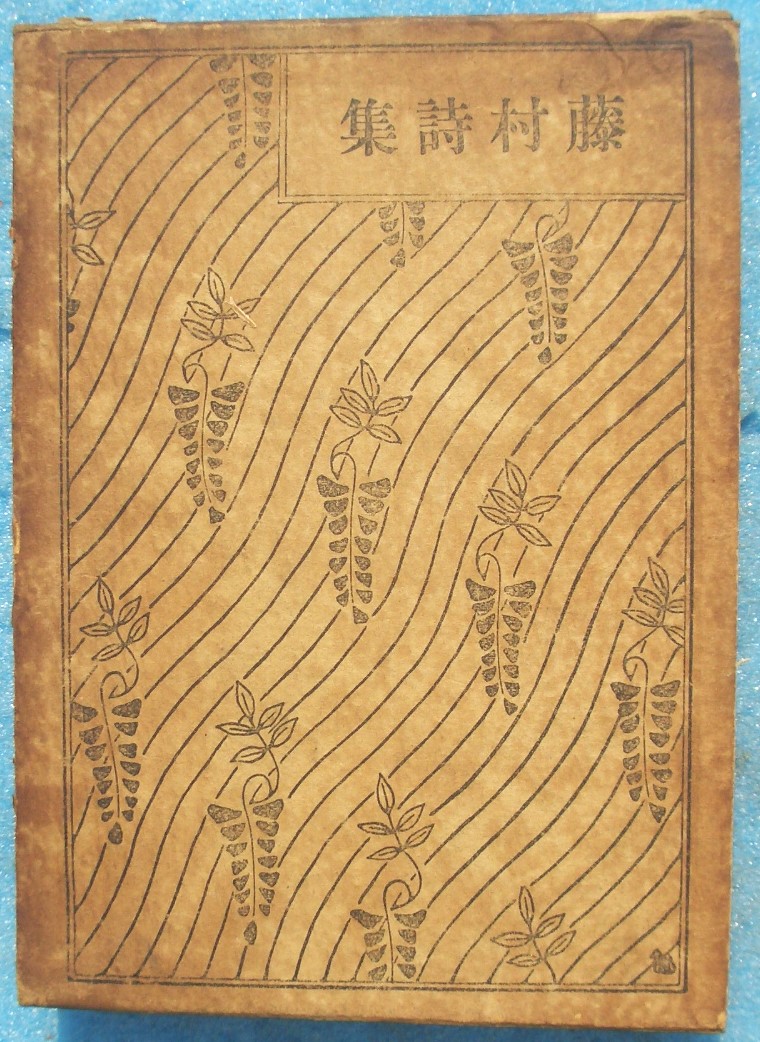 藤村詩集